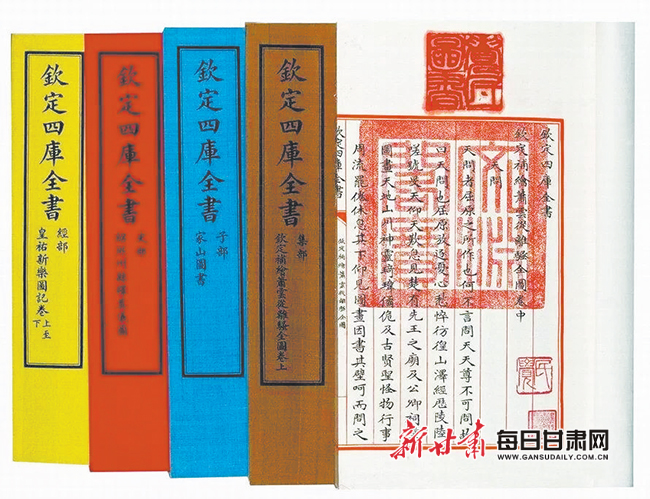 欽定四庫全書
經部
皇祐新樂圖記卷上至下
欽定四庫全書
史部
欽定四庫全書
子部
家山圖書
欽定四庫全書
集部
欽定補繪蕭雲從離騷全圖卷上
文淵閣寶
欽定四庫全書
欽定補繪蕭雲從離騷全圖卷中
天問
天問者屈原之所作也何不言問天天尊不可問故
曰天問也屈原放逐憂心愁悴彷徨山澤經歷陵陸
嗟號旻天仰天歎息見楚有先王之廟及公卿祠
圖畫天地山川神靈琦瑋僪佹及古賢聖怪物行事
周流罷倦休息其下仰見圖畫因書其壁呵而問之
欽定四庫全書
欽定補繪蕭雲從離騷全圖
新甘肃
每日甘肃网
WWW.GANSUDAILY.COM.CN